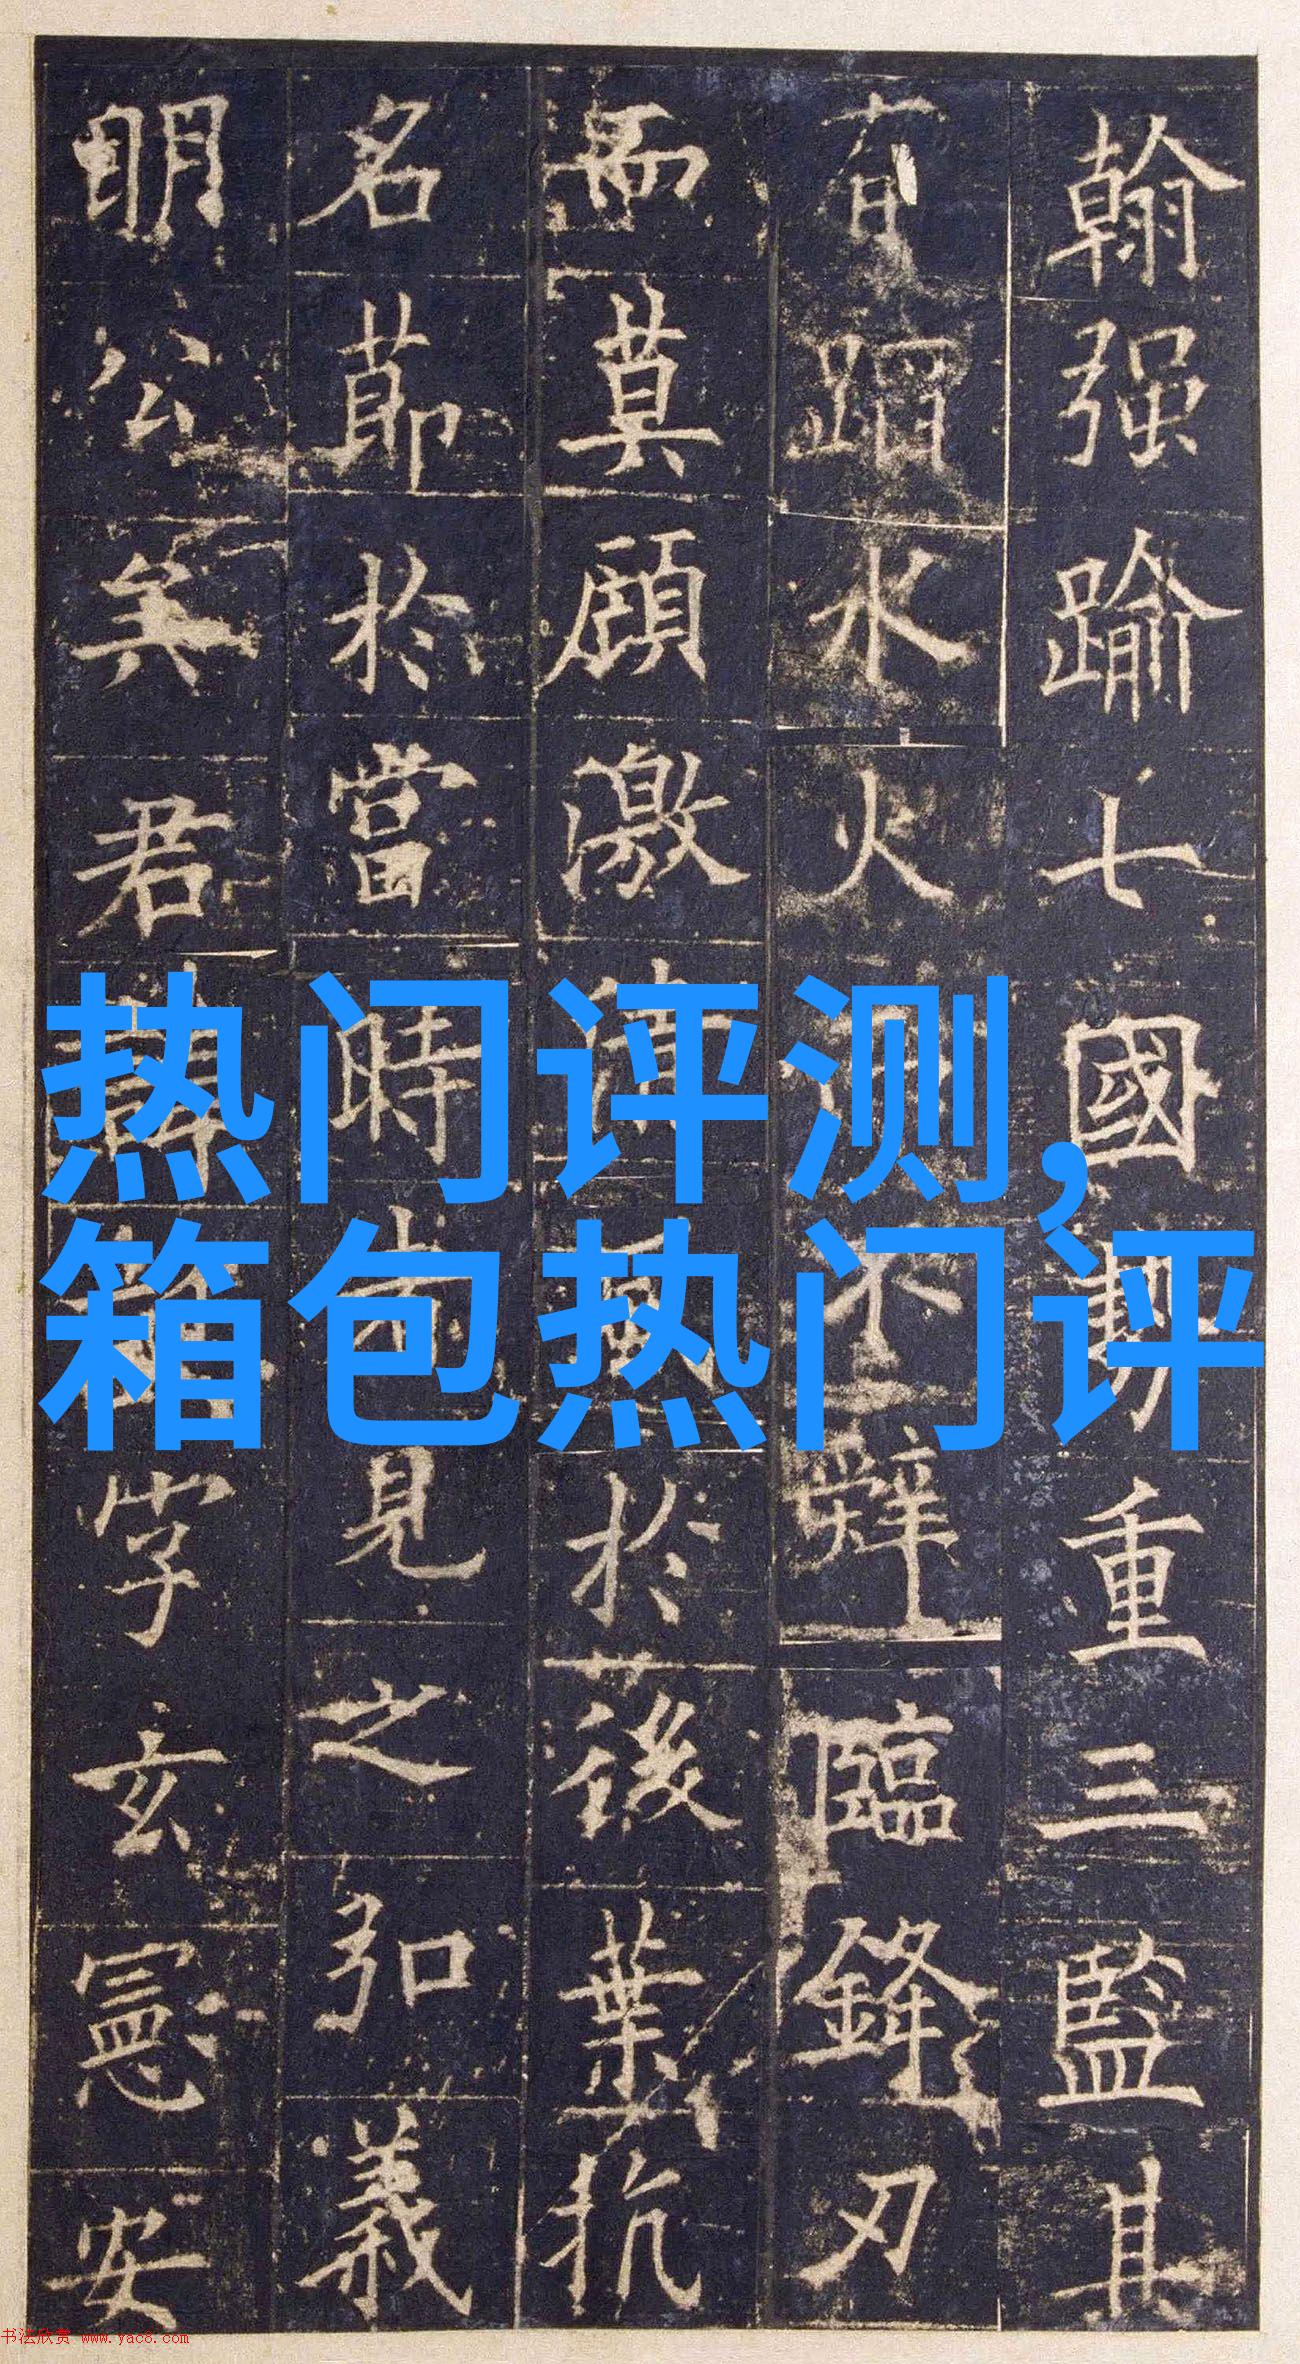 翰强踰七國勢重三監其
有蹈水火
不辞臨鋒刃
而莫顧激清風於後葉抗
名節於當時
見之弘義
明公矣君諱
字玄憲安
热门评测,
箱包热门评
书法欣赏 www.yac8.com